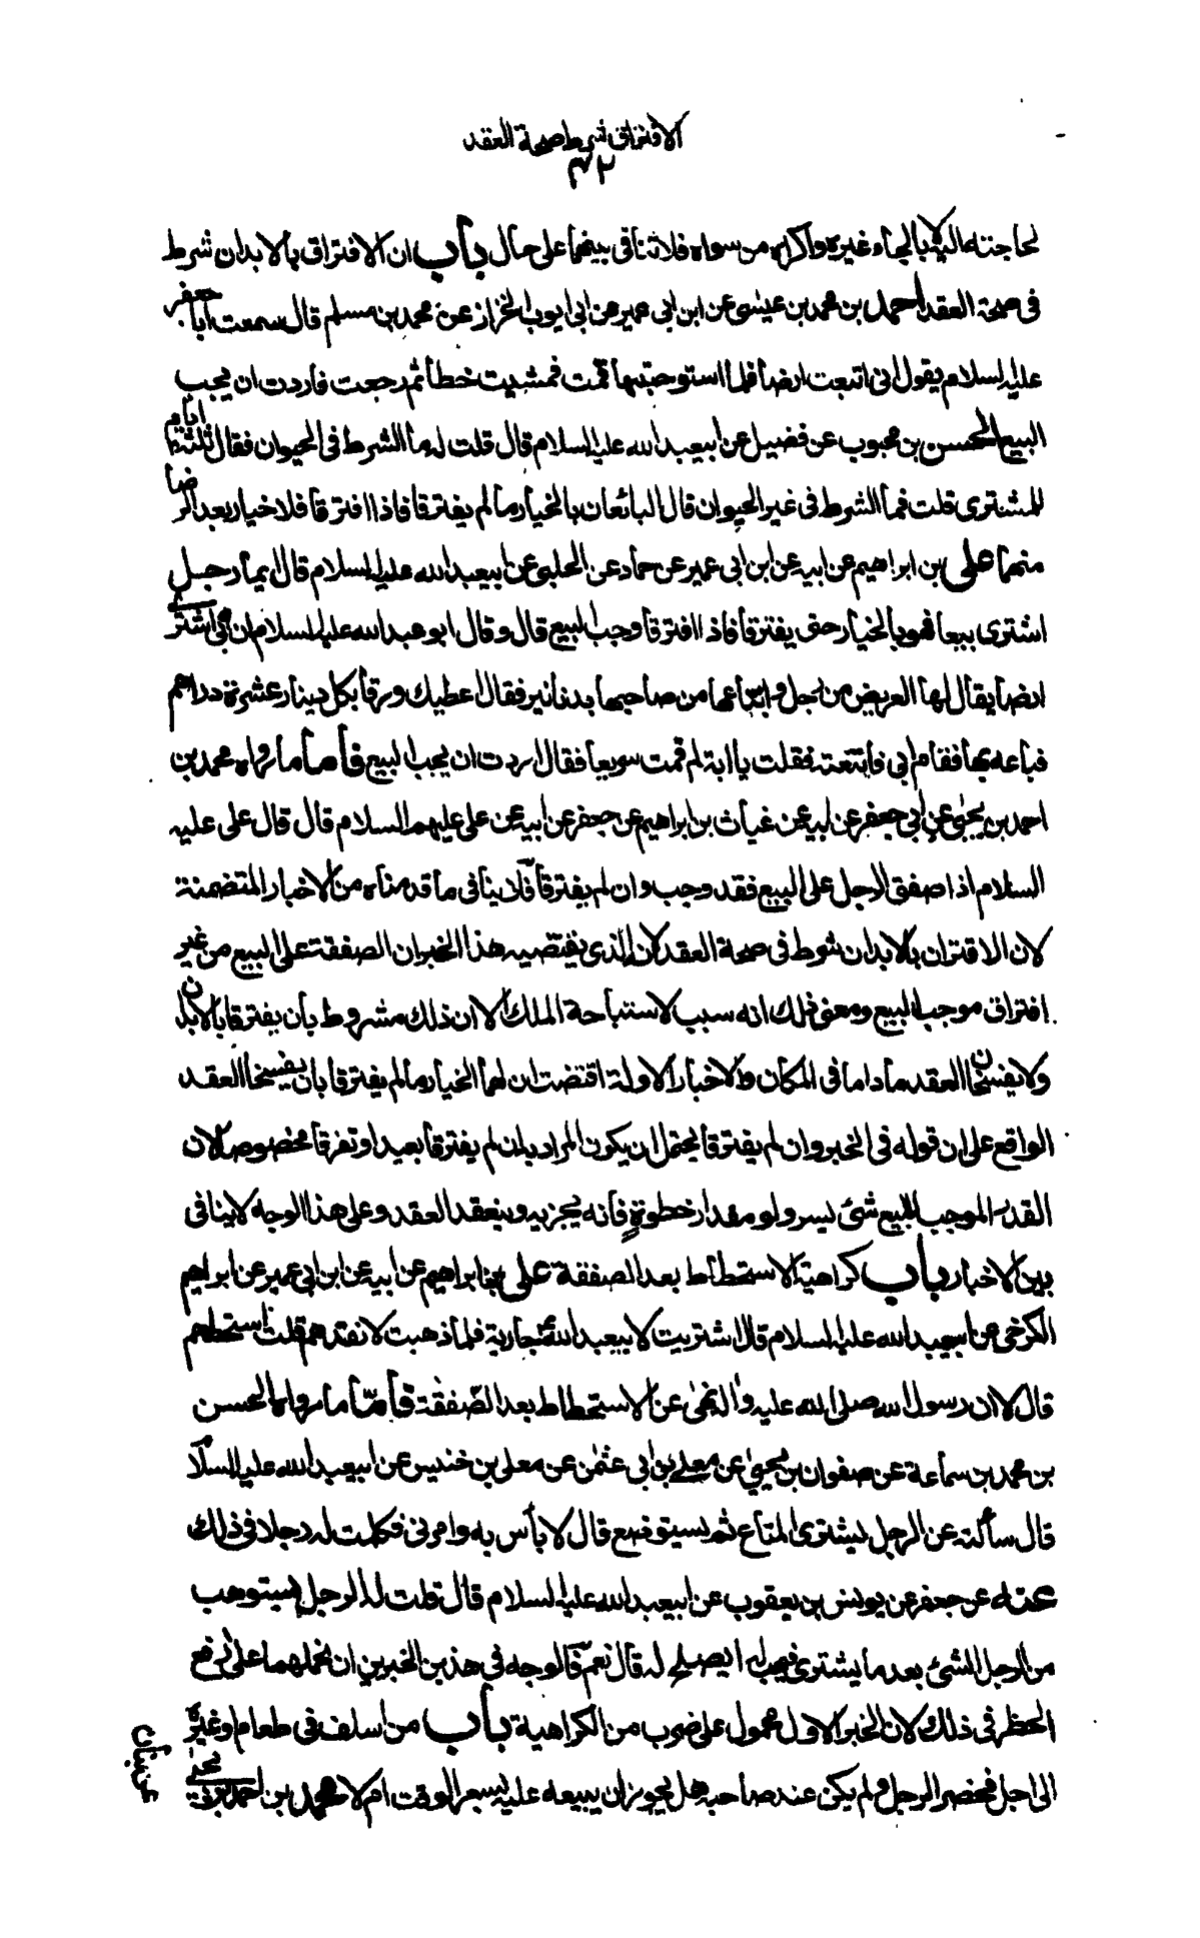 الافتراق شرط صحة العقد
٤٢
لحاجته اليه لا بالجاء غيره واكراه من سواه فلا تنافى بينهما على حال باب ان الافتراق بالابدان شرط
فى صحة العقد احمد بن محمد بن عيسى عن ابن ابى عمير عن ابى ايوب الخزاز عن محمد بن مسلم قال سمعت ابا جعفر
عليه السلام يقول انى ابتعت ارضا فلما استوجبتها قمت فمشيت خطا ثم رجعت فاردت ان يجب
البيع الحسن بن محبوب عن فضيل عن ابيعبد الله عليه السلام قال قلت له ما الشرط فى الحيوان فقال ثلثة ايام
للمشترى قلت فما الشرط فى غير الحيوان قال البائعان بالخيار ما لم يفترقا فاذا افترقا فلا خيار بعد الرضا
منهما على بن ابراهيم عن ابيه عن ابن ابى عمير عن حماد عن الحلبى عن ابيعبد الله عليه السلام قال ايما رجل
اشترى بيعا فهو بالخيار حتى يفترقا فاذا افترقا وجب البيع قال وقال ابو عبد الله عليه السلام ان ابى اشترى
ارضا يقال لها العريض من رجل وابتاعها من صاحبها بدنانير فقال اعطيك ورقا بكل دينار عشرة دراهم
فباعه بها فقام ابى فاتبعته فقلت يا ابة لم قمت سريعا فقال اردت ان يجب البيع فاما ما رواه محمد بن
احمد بن يحيى عن ابى جعفر عن ابيه عن غياث بن ابراهيم عن جعفر عن ابيه عن على عليهم السلام قال قال على عليه
السلام اذا صفق الرجل على البيع فقد وجب وان لم يفترقا فلا ينافى ما قدمناه من الاخبار المتضمنة
لان الاقتران بالابدان شرط فى صحة العقد لان الذى يقتضيه هذا الخبر ان الصفقة على البيع من غير
افتراق موجب البيع ومعنى ذلك انه سبب لاستباحة الملك الا ان ذلك مشروط بان يفترقا بالابدان
ولا يفسخان العقد ما داما فى المكان والاخبار الاولة اقتضت ان لهما الخيار ما لم يفترقا بان يفسخا العقد
الواقع على ان قوله فى الخبر وان لم يفترقا يحتمل ان يكون المراد به ان لم يفترقا بعيدا وتفرقا مخصوصا لان
القدر الموجب للبيع شئ يسير ولو مقدار خطوة فانه يجزيه وينعقد العقد وعلى هذا الوجه لا ينافى
بين الاخبار باب كراهية الاستحطاط بعد الصفقة على بن ابراهيم عن ابيه عن ابن ابى عمير عن ابراهيم
الكرخى عن ابيعبد الله عليه السلام قال اشتريت لابيعبد الله ع جارية فلما ذهبت لانقدهم قلت استحطهم
قال لا ان رسول الله صلى الله عليه واله نهى عن الاستحطاط بعد الصفقة فاما ما رواه الحسن
بن محمد بن سماعة عن صفوان بن يحيى عن معلى بن ابى عثمن عن معلى بن خنيس عن ابيعبد الله عليه السلام
قال سألته عن الرجل يشترى المتاع ثم يستوضع قال لا بأس به وامرنى فكلمت له رجلا فى ذلك
عنه عن جعفر عن يونس بن يعقوب عن ابيعبد الله عليه السلام قال قلت له الرجل يستوهب
من الرجل الشئ بعد ما يشترى فيهب له ايصلح له قال نعم فالوجه فى هذين الخبرين ان نحملهما على رفع
الحظر فى ذلك لان الخبر الاول محمول على ضرب من الكراهية باب من اسلف فى طعام او غيره
الى اجل فحضر الرجل ولم يكن عند صاحبه هل يجوز ان يبيعه عليه بسعر الوقت ام لا محمد بن احمد بن يحيى
عن بنان